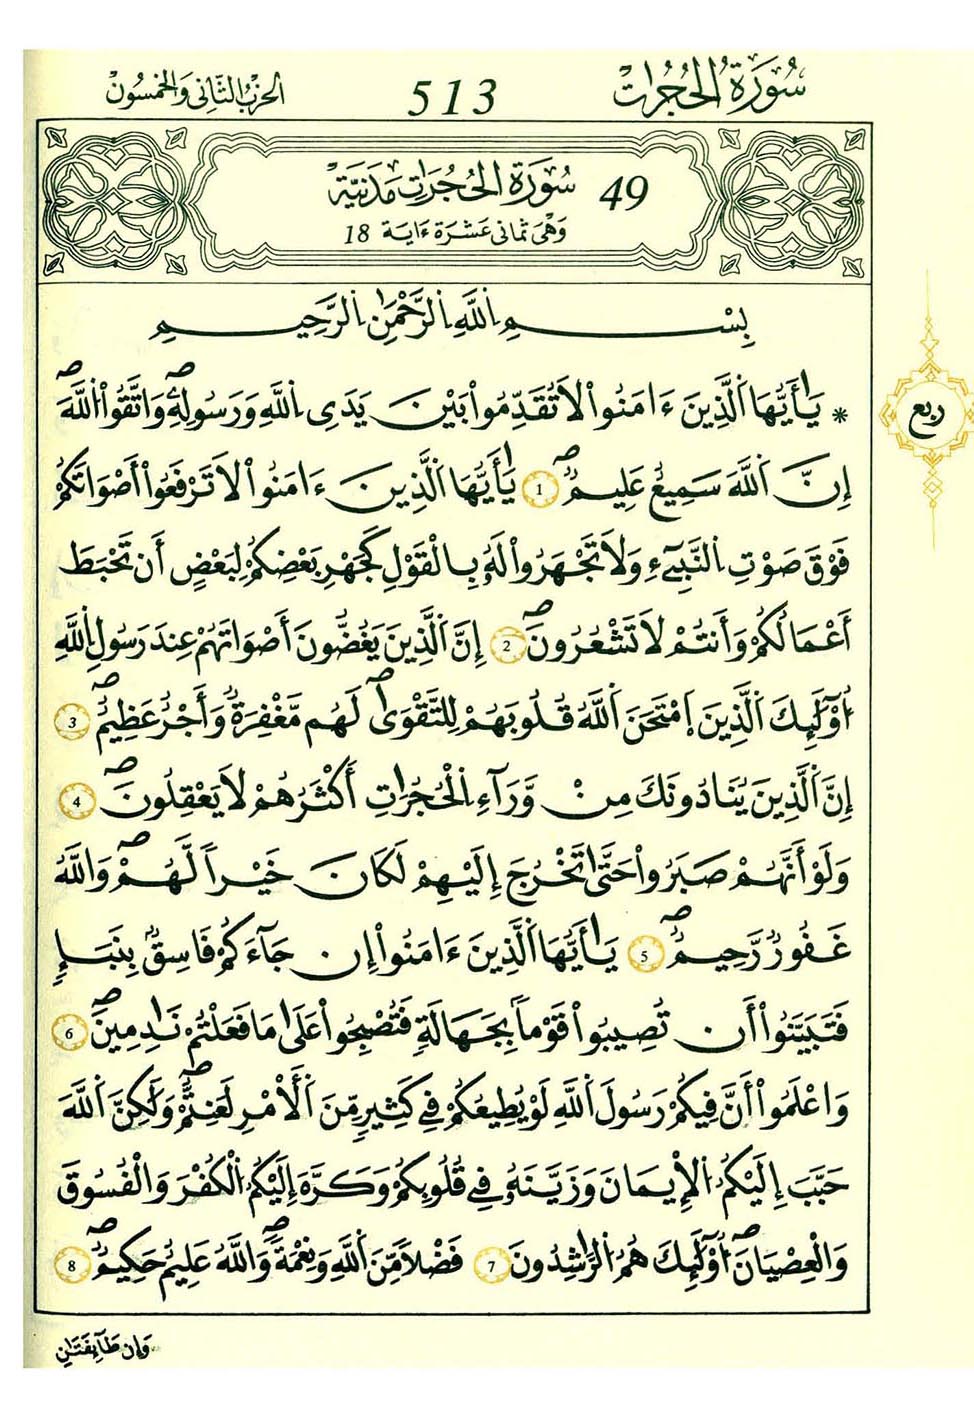 سُورَةُ الْحُجُرَاتِ 513 الحِزْبُ الثَّانِي وَالخَمْسُونَ
49 سُورَةُ الْحُجُرَاتِ مَدَنِيَّة
وَهْيَ ثَمَانِي عَشْرَةَ ءَايَة 18
بِسْمِ اِللَّهِ اِلرَّحْمَٰنِ اِلرَّحِيمِ
* يَٰأَيُّهَا اَلَّذِينَ ءَامَنُواْ لَا تُقَدِّمُواْ بَيْنَ يَدَيِ اِللَّهِ وَرَسُولِهِۦ وَاتَّقُواْ اُللَّهَ صه
ربع
إِنَّ اَللَّهَ سَمِيعٌ عَلِيمٌ صه 1 يَٰأَيُّهَا اَلَّذِينَ ءَامَنُواْ لَا تَرْفَعُواْ أَصْوَاتَكُمْ
فَوْقَ صَوْتِ اِلنَّبِيٓءِ وَلَا تَجْهَرُواْ لَهُۥ بِالْقَوْلِ كَجَهْرِ بَعْضِكُمْ لِبَعْضٍ أَن تَحْبَطَ
أَعْمَالُكُمْ وَأَنتُمْ لَا تَشْعُرُونَ صه 2 إِنَّ اَلَّذِينَ يَغُضُّونَ أَصْوَاتَهُمْ عِندَ رَسُولِ اِللَّهِ
أُوْلَٰٓئِكَ اَلَّذِينَ اَمْتَحَنَ اَللَّهُ قُلُوبَهُمْ لِلتَّقْوَىٰ صه لَهُم مَّغْفِرَةٌ وَأَجْرٌ عَظِيمٌ صه 3
إِنَّ اَلَّذِينَ يُنَادُونَكَ مِنْ وَّرَآءِ اِلْحُجُرَاتِ أَكْثَرُهُمْ لَا يَعْقِلُونَ صه 4
وَلَوْ أَنَّهُمْ صَبَرُواْ حَتَّىٰ تَخْرُجَ إِلَيْهِمْ لَكَانَ خَيْراً لَّهُمْ صه وَاللَّهُ
غَفُورٌ رَّحِيمٌ صه 5 يَٰأَيُّهَا اَلَّذِينَ ءَامَنُواْ إِن جَآءَكُمْ فَاسِقٌ بِنَبَإٍ
فَتَبَيَّنُواْ أَن تُصِيبُواْ قَوْماً بِجَهَالَةٍ فَتُصْبِحُواْ عَلَىٰ مَا فَعَلْتُمْ نَٰدِمِينَ صه 6
وَاعْلَمُواْ أَنَّ فِيكُمْ رَسُولَ اَللَّهِ لَوْ يُطِيعُكُمْ فِي كَثِيرٍ مِّنَ اَلْأَمْرِ لَعَنِتُّمْ صه وَلَٰكِنَّ اَللَّهَ
حَبَّبَ إِلَيْكُمُ اُلْإِيمَانَ وَزَيَّنَهُۥ فِي قُلُوبِكُمْ وَكَرَّهَ إِلَيْكُمُ اُلْكُفْرَ وَالْفُسُوقَ
وَالْعِصْيَانَ صه أُوْلَٰٓئِكَ هُمُ اُلرَّٰشِدُونَ 7 فَضْلاً مِّنَ اَللَّهِ وَنِعْمَةً صه وَاللَّهُ عَلِيمٌ حَكِيمٌ صه 8
وَإِن طَآئِفَتَٰنِ